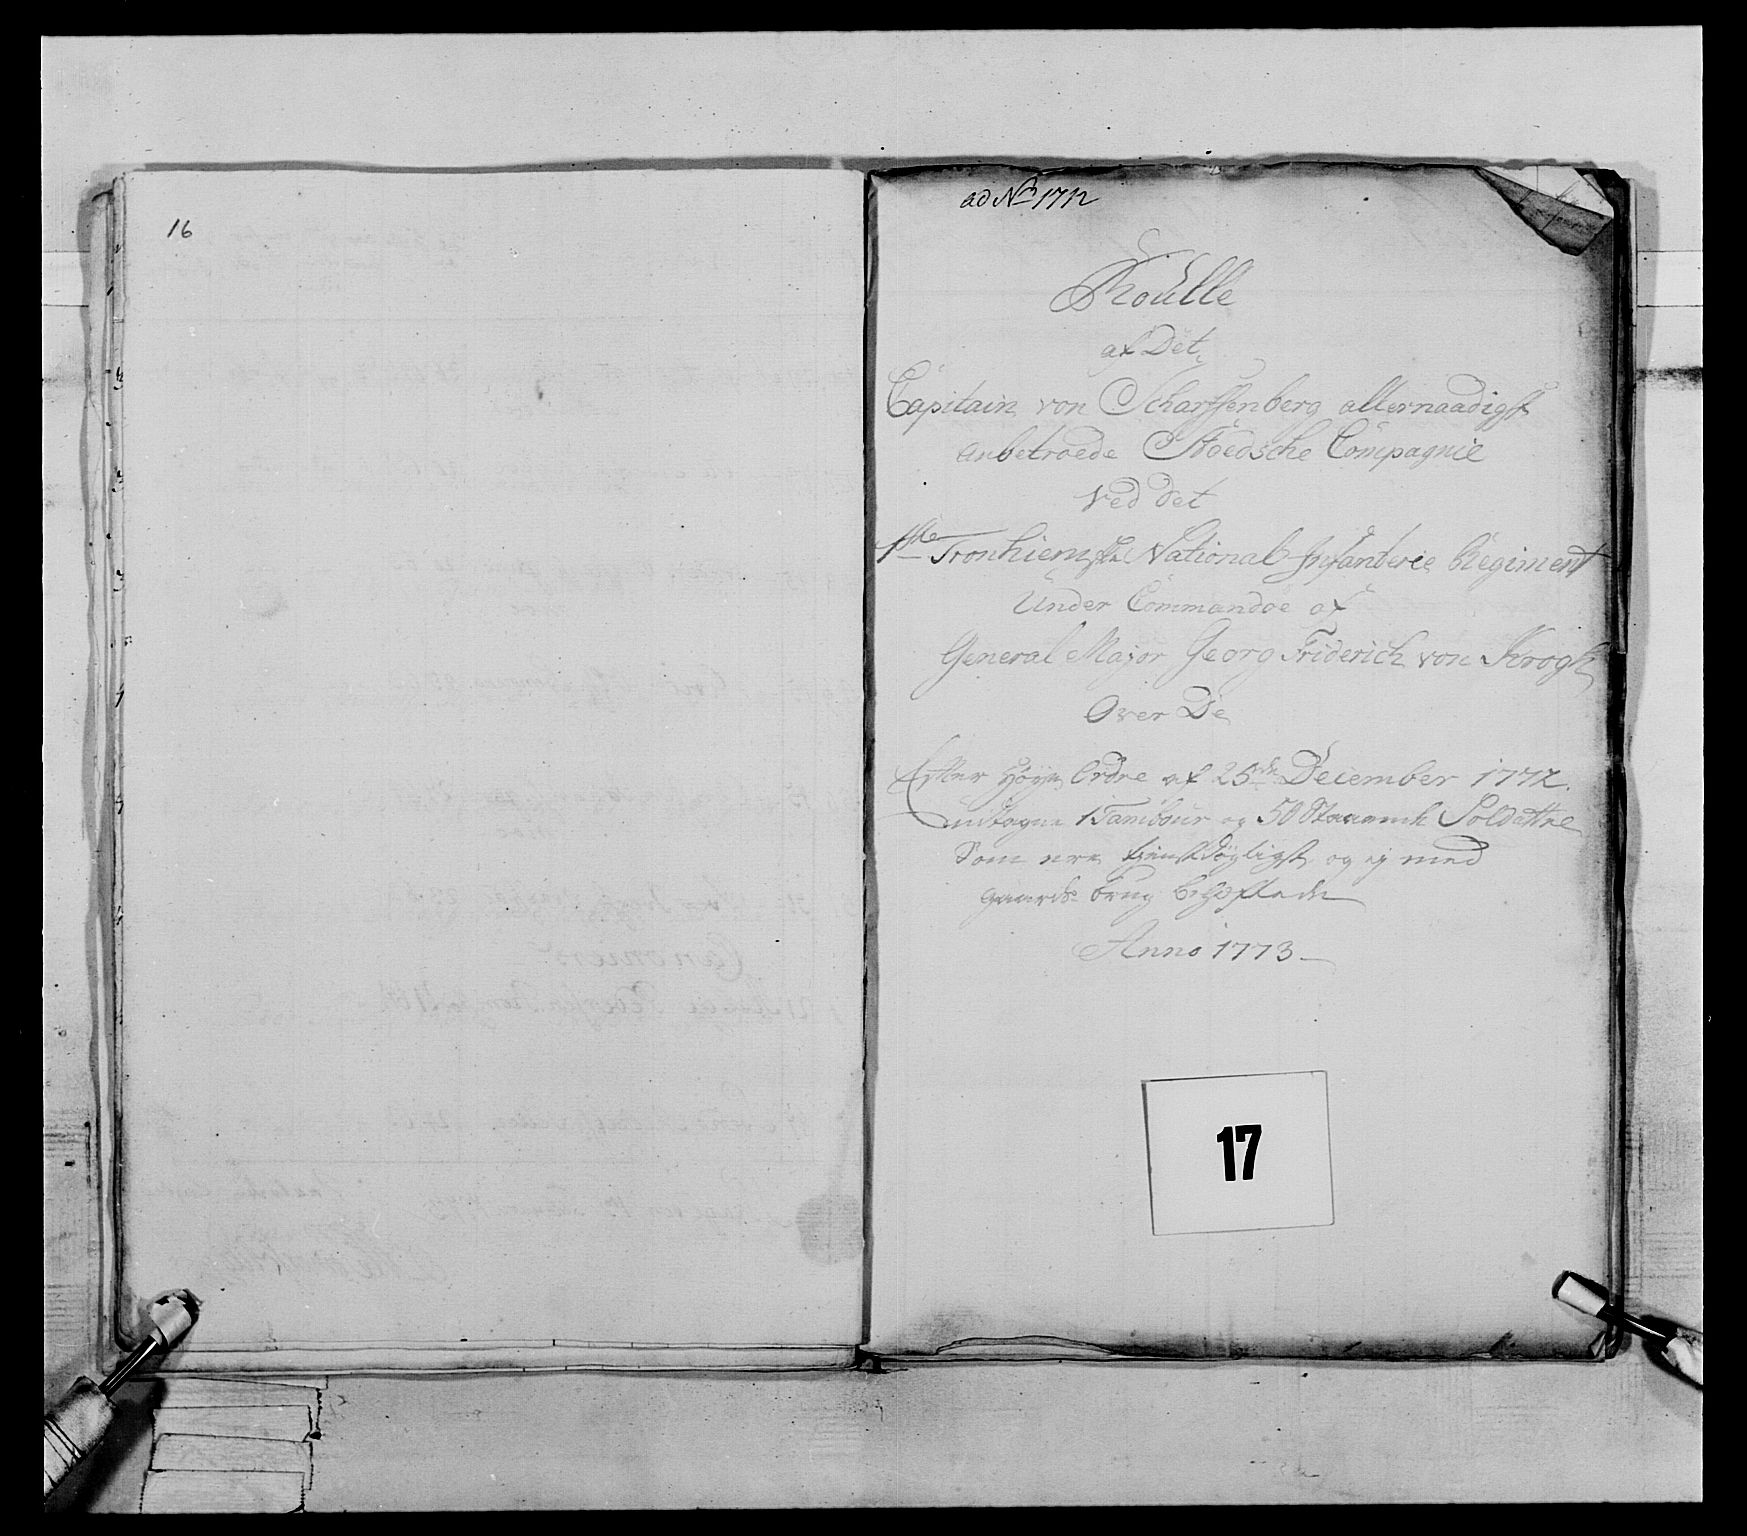 16
ad No 1712
Roulle
af Det
Capitain von Scharffenberg allernaadigst
anbetroede Stoedsche Compagnie
ved det
1ste Tronhiemske National Infanterie Regiment
Under Commandoe af
General Major Georg Friderich von Krogh
Over De
Efter Høye Ordre af 25de December 1772.
udtagne 1 Tambour og 50 Staaende Soldatter
Som ere tienstdøygligst og ej med
gaards brug behæftede
Anno 1773
17